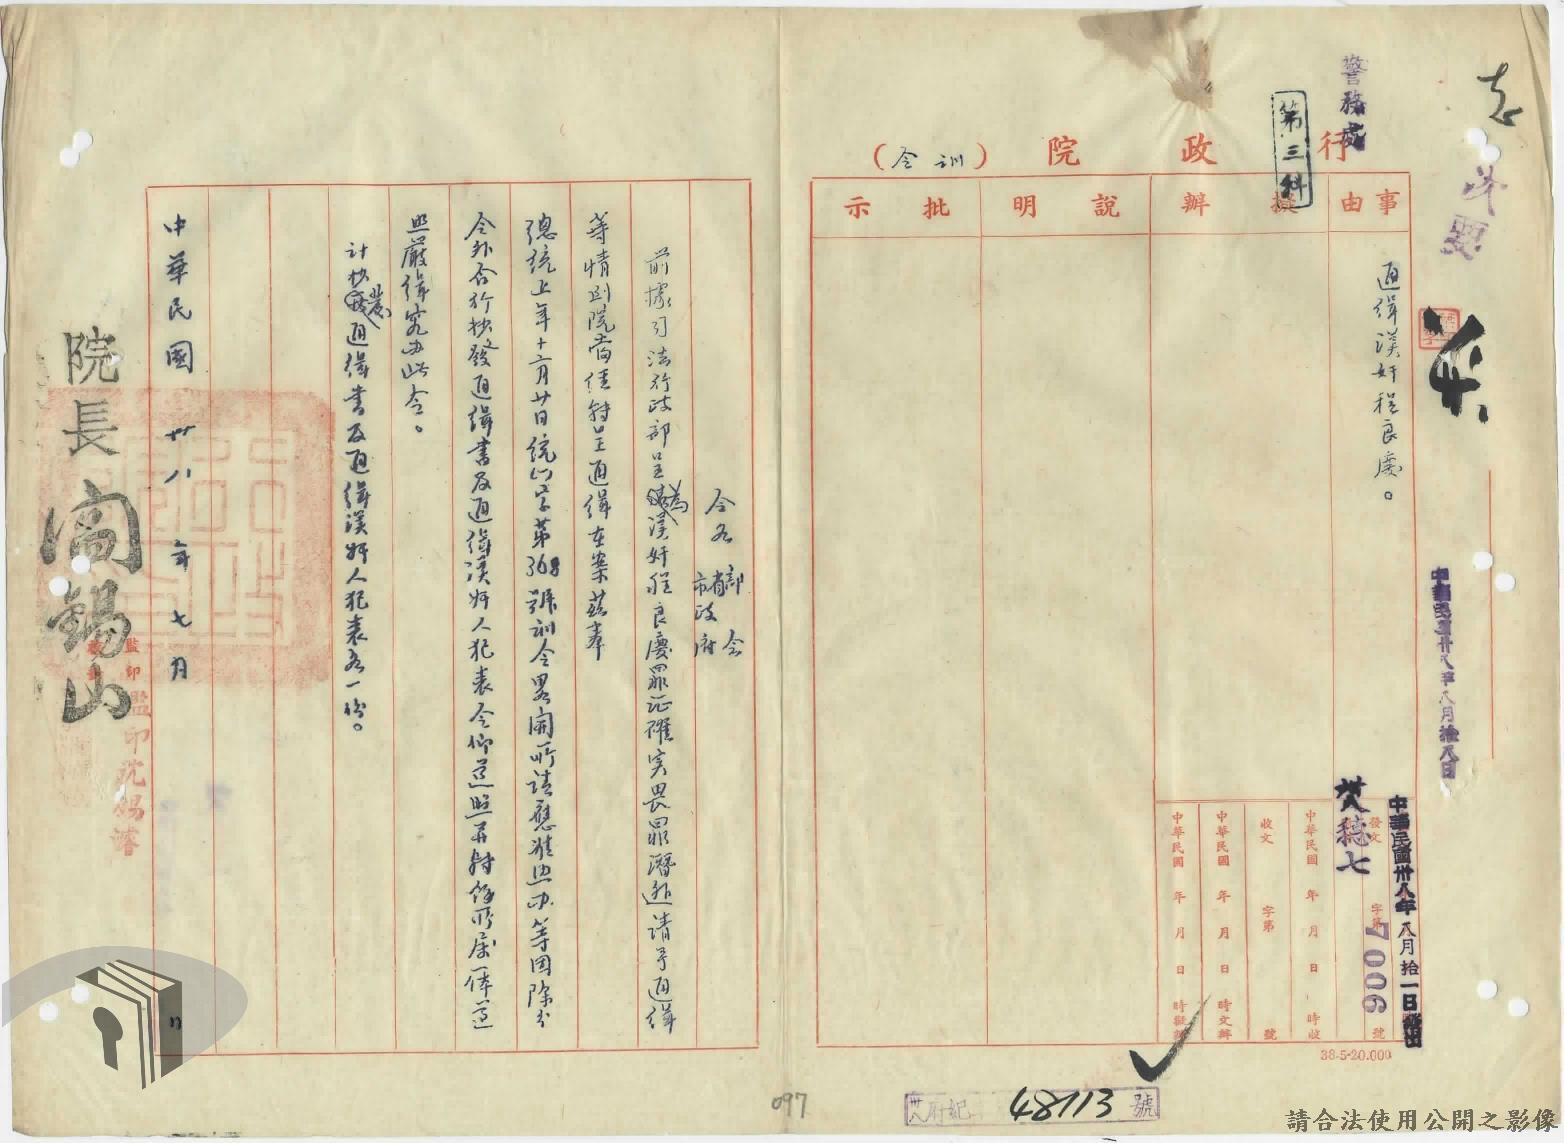 行政院（訓令）
警務處
第三科
事由
擬辦
說明
批示
通緝漢奸程良慶。
中華民國卅八年八月拾八日
中華民國卅八年八月拾一日發出
發文
穗七
字第
7006
號
中華民國 年 月 日 時收
收文 字第 號
中華民國 年 月 日 時交辦
中華民國 年 月 日 時擬辦
38-5-20.600
令各部會
省市政府
前據司法行政部呈為漢奸程良慶罪証確实畏罪潛逃請予通緝
等情到院當經轉呈通緝在案茲奉
總統上年十二月廿日統(一)字第368號訓令畧開所請應准照办等因除分
令外合行抄發通緝書及通緝漢奸人犯表令仰遵照并轉飭所属一体遵
照嚴緝究办此令。
計抄發通緝書及通緝漢奸人犯表各一份。
中華民國卅八年七月 日
院長 閻錫山
監印
監印沈錫濬
097
卅八府紀 48113 號
請合法使用公開之影像